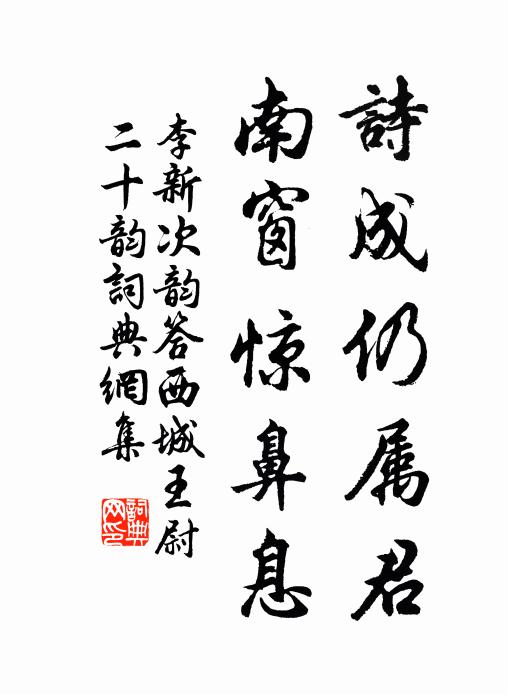 詩成仍属君
南窗惊鼻息
李新次韵答西城王尉
二十韵詞典網集
詞典
网印